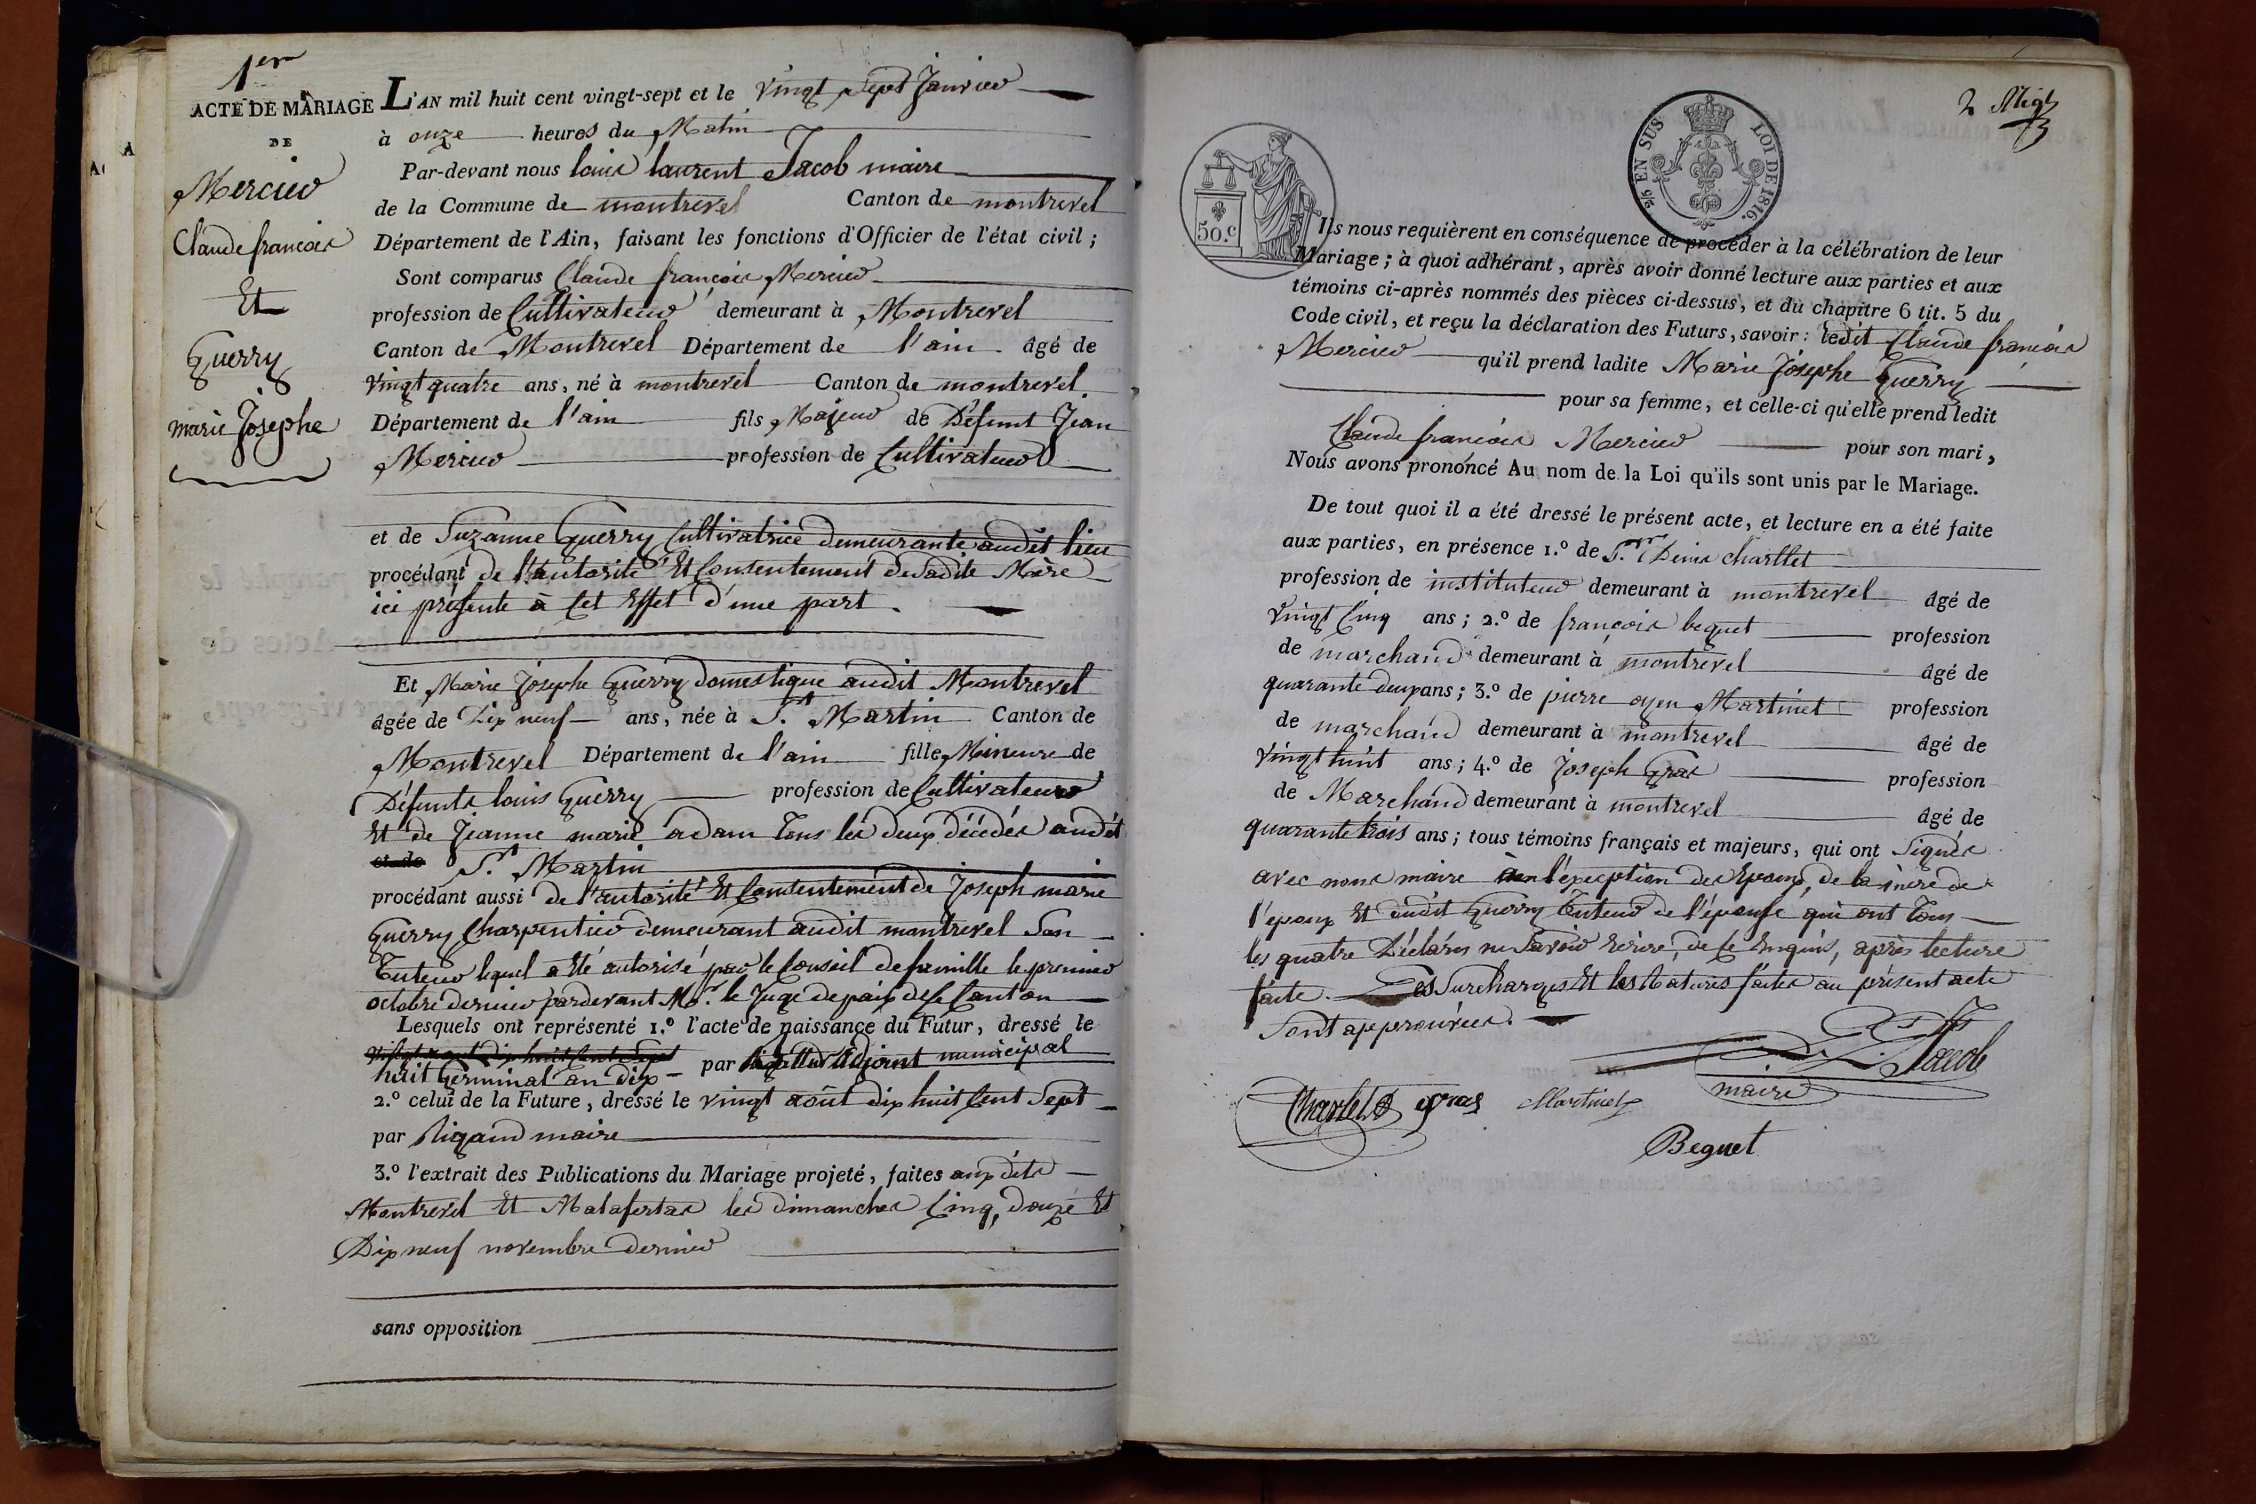 1er
ACTE DE MARIAGE
DE
Mercier
Claude françois
Et
Guerry
marie Josephe
L'AN mil huit cent vingt-sept et le vingt sept Janvier
à onze heures du Matin
Par-devant nous louis laurent Jacob maire
de la Commune de montrevel Canton de montrevel
Département de l'Ain, faisant les fonctions d'Officier de l'état civil ;
Sont comparus Claude françois Mercier
profession de Cultivateur demeurant à Montrevel
Canton de Montrevel Département de l'ain âgé de
vingt quatre ans, né à montrevel Canton de montrevel
Département de l'ain fils Majeur de Défunt Jean
Mercier profession de Cultivateur
et de Suzanne Guerry Cultivatrice demeurante audit lieu
procédant de l'autorité Et Consentement de sadite Mère
ici présente à Cet Effet d'une part.
Et Marie Josephe Guerry domestique audit Montrevel
âgée de Dix neuf ans, née à St. Martin Canton de
Montrevel Département de l'ain fille Mineure de
Défunts louis Guerry profession de Cultivateur
Et de Jeanne marie adam Tous les deux décédés audit
et de St. Martin
procédant aussi de l'autorité Et Consentement de Joseph marie
Guerry Charpentier demeurant audit montrevel Son
Tuteur lequel a Eté autorisé par le Conseil de famille le premier
octobre dernier pardevant Mr. le Juge de paix de Ce Canton
Lesquels ont représenté 1.º l'acte de naissance du Futur, dressé le
vingt aout dix huit Cent Sept par adjoint municipal
huit Germinal an dix
2.º celui de la Future, dressé le vingt août dix huit Cent Sept
par Rigaud maire
3.º l'extrait des Publications du Mariage projeté, faites aux dits
Montrevel Et Malafertas les dimanches Cinq, douze Et
Dix neuf novembre dernier
sans opposition
2
50.c
2/5 EN SUS LOI DE 1816.
Ils nous requièrent en conséquence de procéder à la célébration de leur
Mariage ; à quoi adhérant, après avoir donné lecture aux parties et aux
témoins ci-après nommés des pièces ci-dessus, et du chapitre 6 tit. 5 du
Code civil, et reçu la déclaration des Futurs, savoir : ledit Claude françois
Mercier qu'il prend ladite Marie Josephe Guerry
pour sa femme, et celle-ci qu'elle prend ledit
Claude françois Mercier pour son mari,
Nous avons prononcé Au nom de la Loi qu'ils sont unis par le Mariage.
De tout quoi il a été dressé le présent acte, et lecture en a été faite
aux parties, en présence 1.º de Sr. Denis Charllet
profession de instituteur demeurant à montrevel âgé de
vingt Cinq ans ; 2.º de françois beguet profession
de marchand demeurant à montrevel âgé de
quarante deux ans ; 3.º de pierre oyen Martinet profession
de marchand demeurant à montrevel âgé de
vingt huit ans ; 4.º de Joseph Gras profession
de Marchand demeurant à montrevel âgé de
quarante trois ans ; tous témoins français et majeurs, qui ont Signés
avec nous maire à l'éxception des Epoux, de la mère de
l'époux Et dudit Guerry Tuteur de l'épouse qui ont Tous
les quatre Déclarés ne Savoir Ecrire, de Ce Enquis, après lecture
faite. Les Surcharges Et les Ratures faites au présent acte
Sont approuvées.
Jacob
maire
Charlet gras Martinet
Beguet